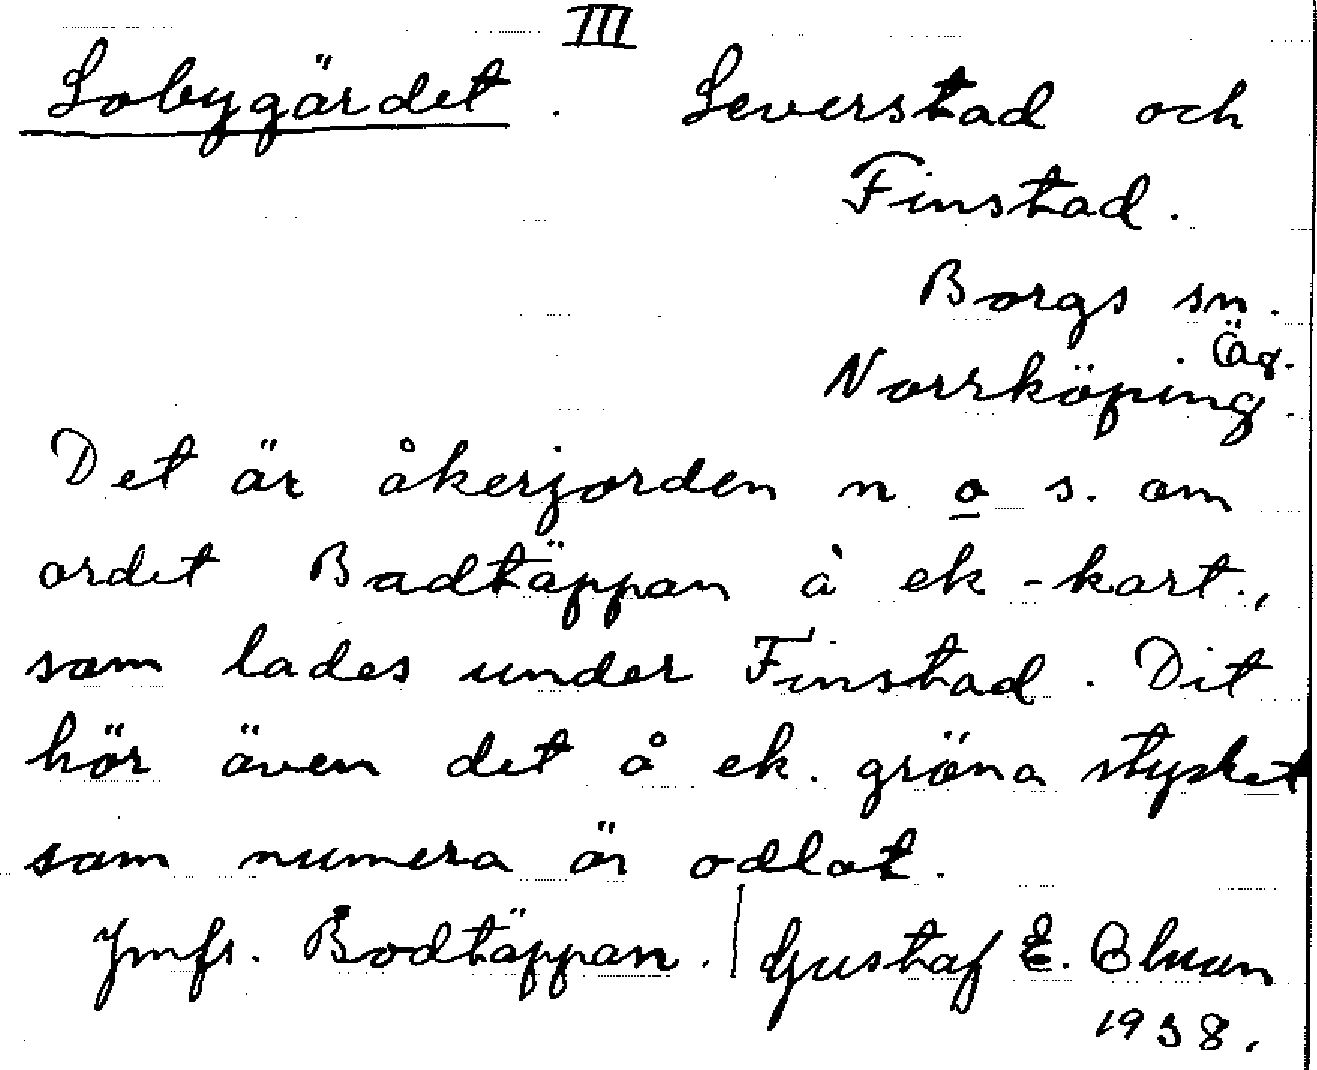 III
Lobygärdet. Leverstad och
Finstad.
Borgs sn.
Äg.
Norrköping.
Det är åkerjorden n o s. om
ordet Badtäppan å ek-kart.,
som lades under Finstad. Dit
hör även det å ek. gröna stycket
som numera är odlat.
Jmfr. Bodtäppan. | Gustaf E.
1938.